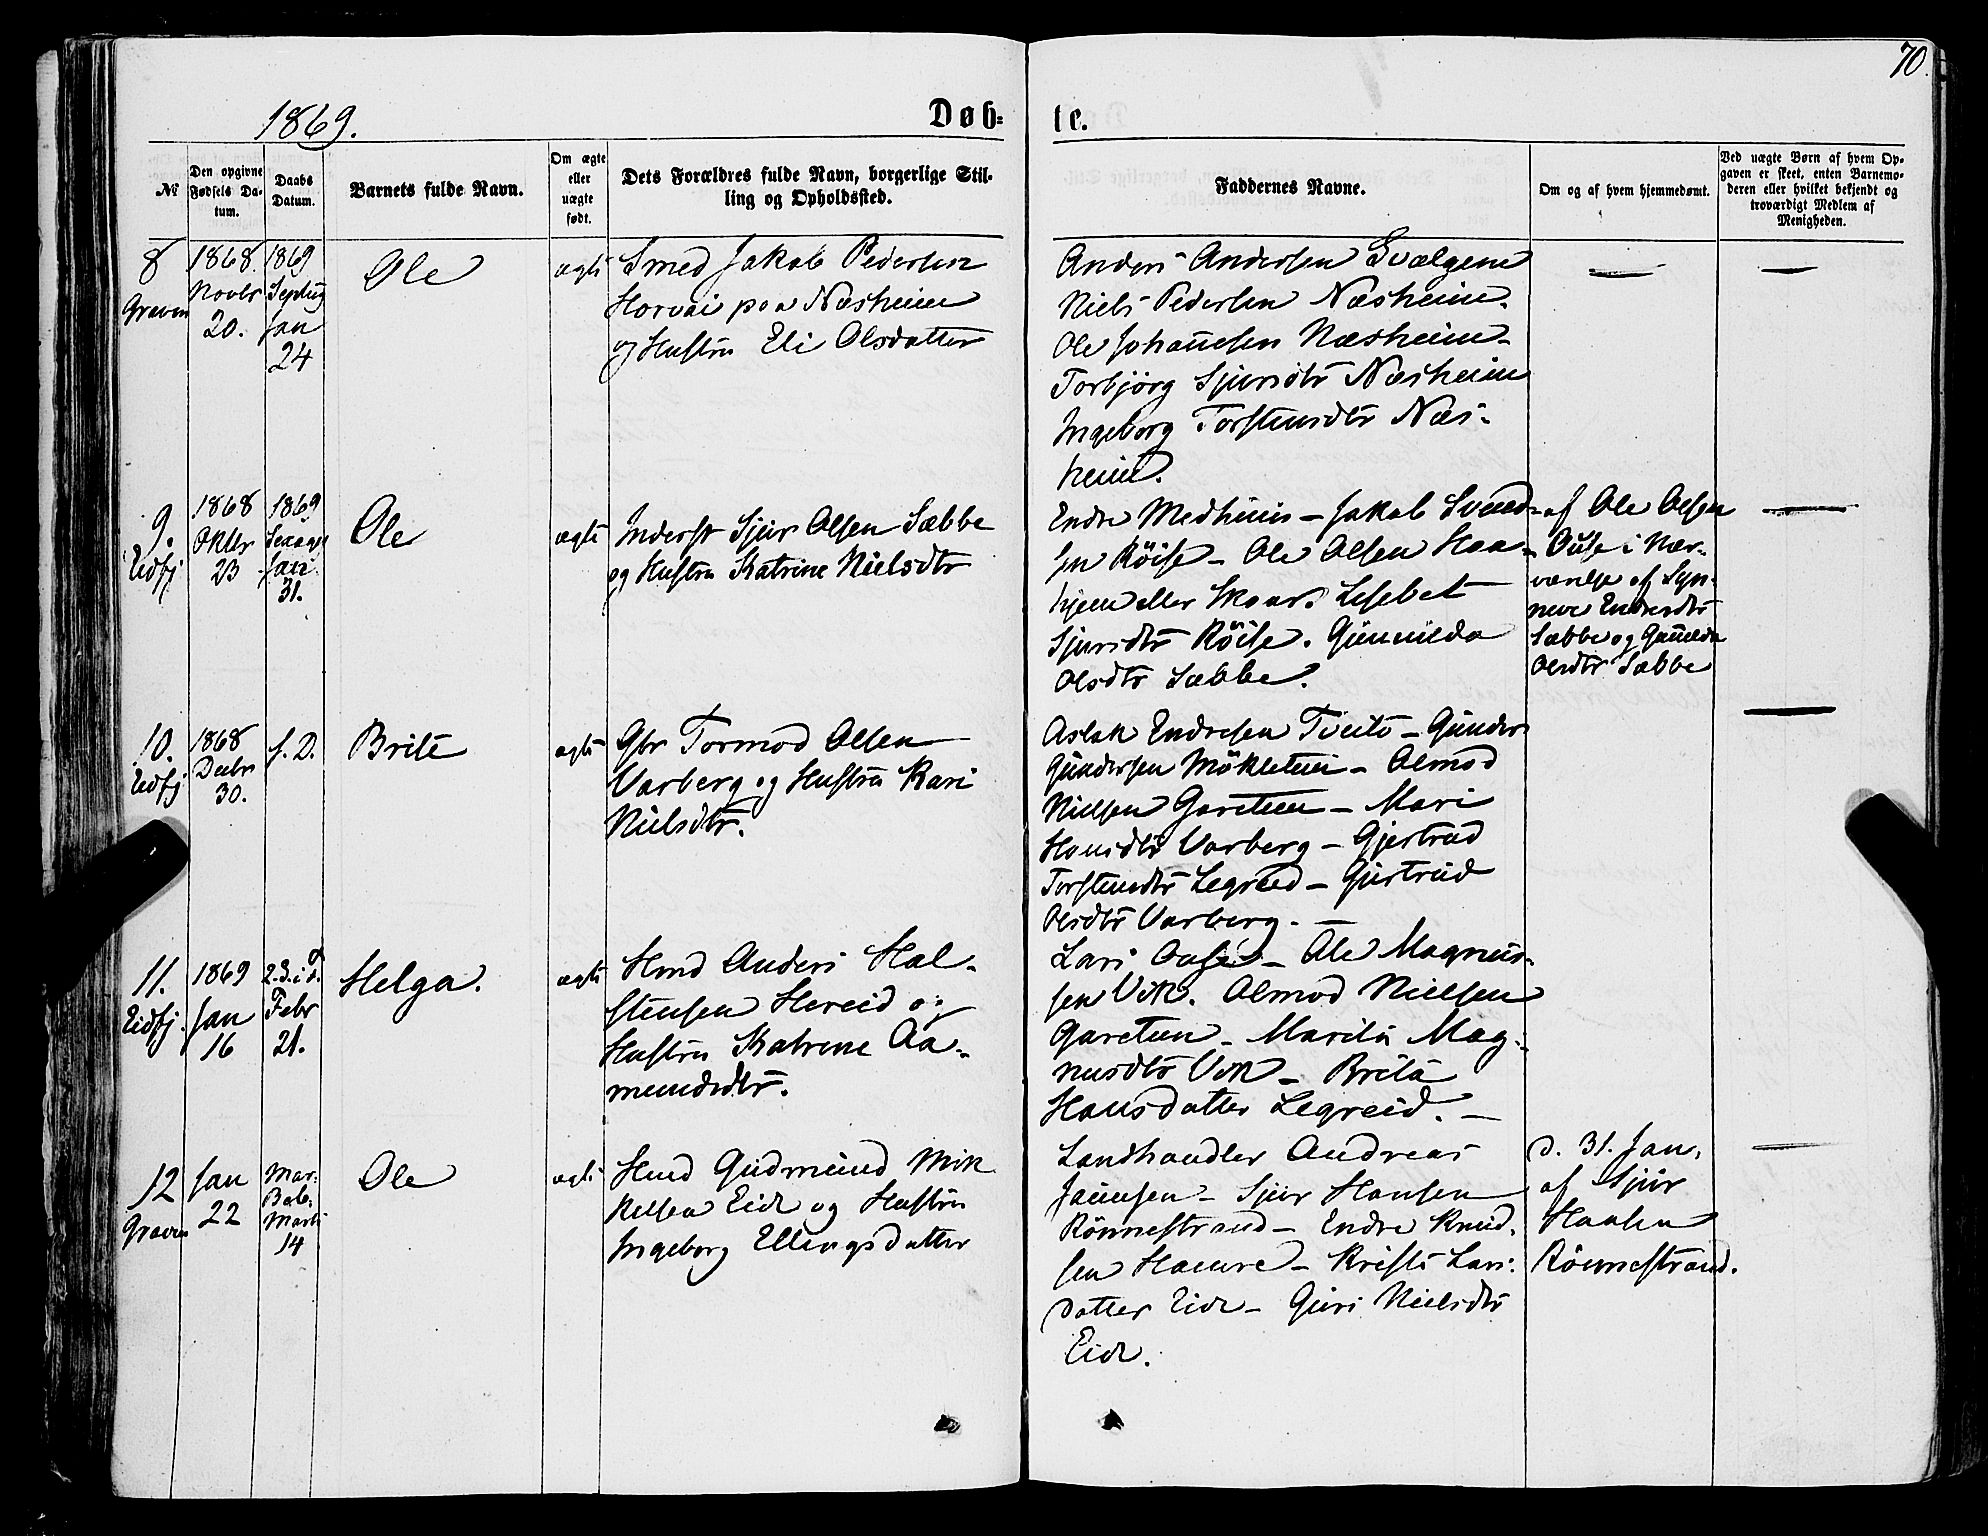 70.
1869.
Døb-
te.
№
Den opgivne Fødsels Da-
tum.
Daabs
Datum.
Barnets fulde Navn.
Om ægte
eller
uægte
født.
Dets Forældres fulde Navn, borgerlige Stil-
ling og Opholdssted.
Faddernes Navne.
Om og af hvem hjemmedømt.
Ved uægte Børn af hvem Op-
gaven er skeet, enten Barnemo-
deren eller hvilket bekjendt og
troværdigt Medlem af
Menigheden.
8
Graven
1868.
Novbr
20.
1869
Septug
Jan
24
Ole
ægte
Smed Jakob Pedersen
Horvei paa Næsheim
og Hustru Eli Olsdatter
Anders Andersen Svelgene
Niels Pedersen Næsheim.
Ole Johannesen Næsheim-
Torbjörg Sjursdtr Næsheim
Ingeborg Torsteinsdtr Næs-
heim.
9.
Eidfj
1868
Oktbr
23
1869
Sexag
Jan.
31.
Ole
ægte
Inderst Sjur Olsen Sæbbe
og Hustru Katrine Nielsdtr
Endre Medhuus - Jakob Svend-
sen Röise - Ole Olsen Hæa-
hjem eller Skaar. Lisebet
Sjursdtr Röise. Gunnilda
Olsdtr Sæbbe.
af Ole Olsen
Quse i Nær-
værelse af Syn-
neve Endresdtr
Sæbbe og Gunnilda
Olsdtr Sæbbe
10.
Eidfj
1868
Decbr
30.
s. D.
Brite
ægte
Gbr Tormod Olsen
Varberg og Hustru Kari
Nielsdtr.
Aslak Endresen Tveito - Gunder
Gundersen Mökletun - Olmod
Nielsen Garetun - Mari
Hansdtr Varberg - Gjertrud
Torsteinsdtr Legreid - Gjertrud
Olsdtr Varberg. -
11.
Eidfj.
1869
Jan
16
2. S. i F.
Febr
21.
Helga.
ægte
Hmd Anders Hal-
stensen Hereid og
Hustru Katrine Aa-
mundsdtr.
Lars - Ole Magnus-
sen Vik. Olmod Nielsen
Garetun - Marita Mag-
nusdtr Vik - Brita
Hansdatter Legreid. -
12
Graven
Jan
22
Mar.
Bob.
Marts
14
Ole
ægte
Hmd Gudmund Mik
kelsen Eide og Hustru
Ingeborg Ellingsdatter
Landhandler Andreas
Jannsen - Sjur Hansen
Rönnestrand - Endre Knud-
sen Haeure - Kristi Lars-
datter Eide - Guri Nielsdtr
Eide.
d. 31. Jan.
af Sjur
Hansen
Rönnestrand.